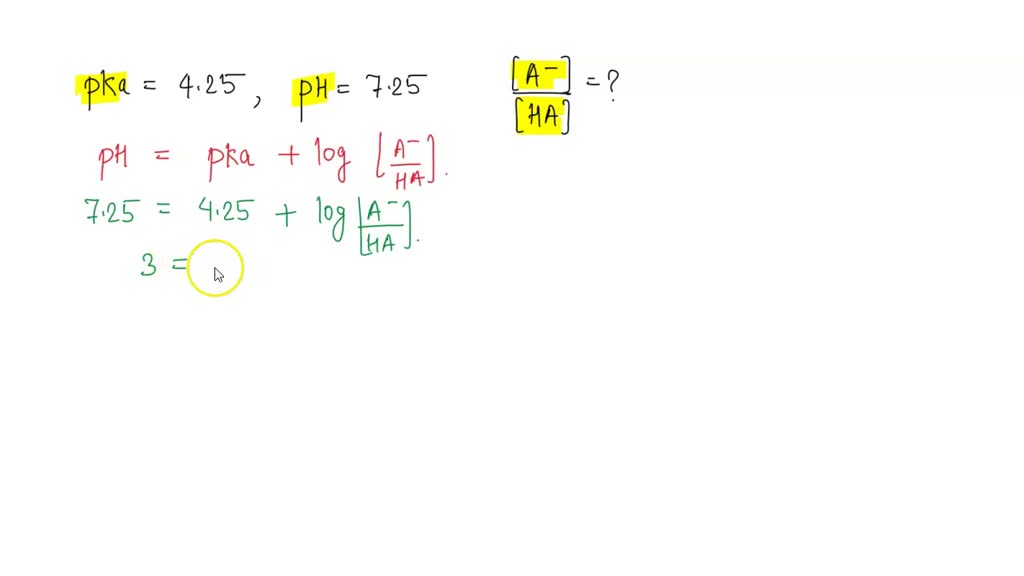 pKa = 4.25, pH = 7.25
[A⁻]/[HA] = ?
pH = pKa + log [A⁻/HA].
7.25 = 4.25 + log [A⁻/HA].
3 =